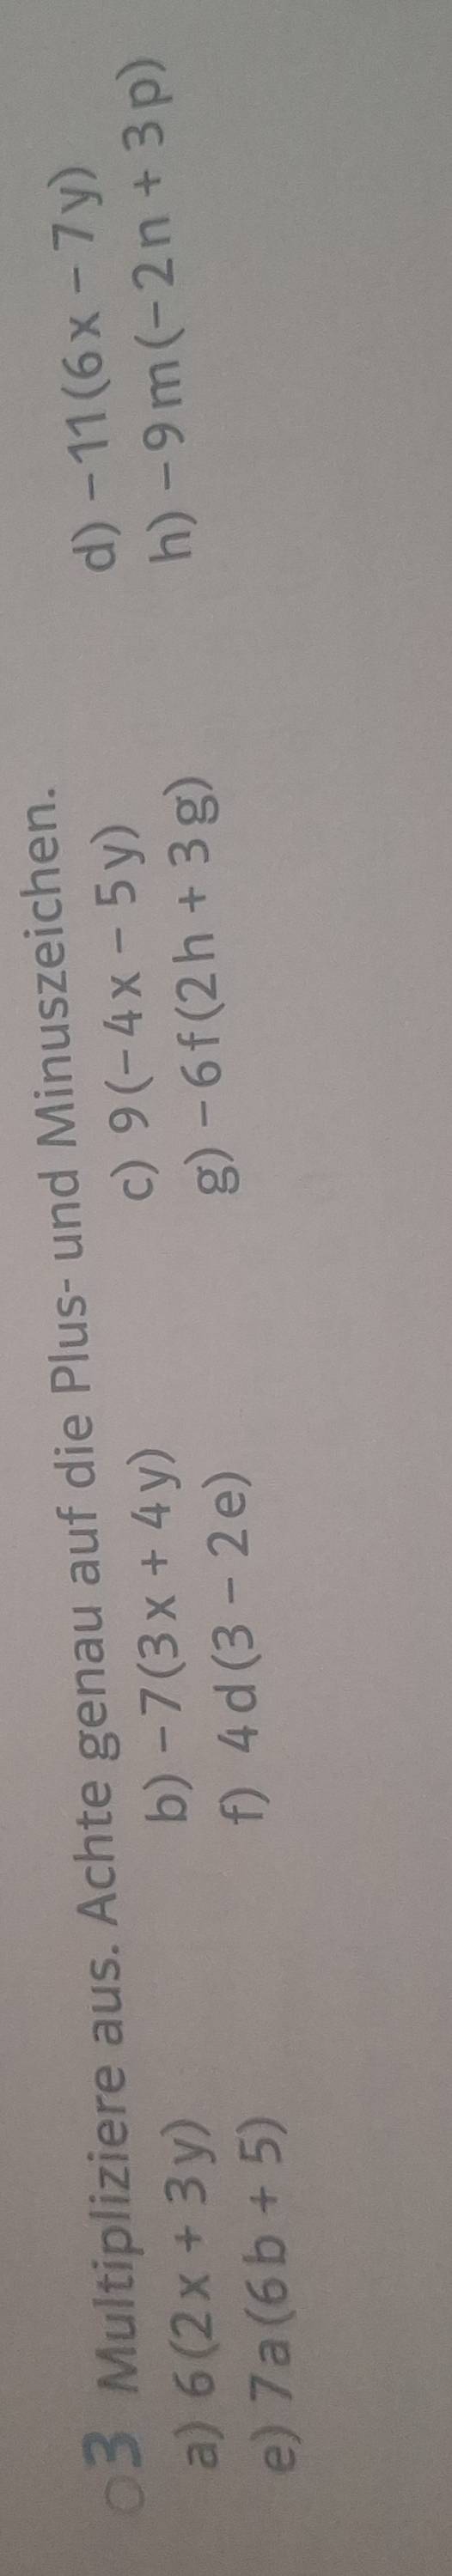 3 Multipliziere aus. Achte genau auf die Plus- und Minuszeichen.
a) 6(2x + 3y) b) −7(3x + 4y) c) 9(−4x − 5y) d) −11(6x − 7y)
e) 7a(6b + 5) f) 4d(3 − 2e) g) −6f(2h + 3g) h) −9m(−2n + 3p)